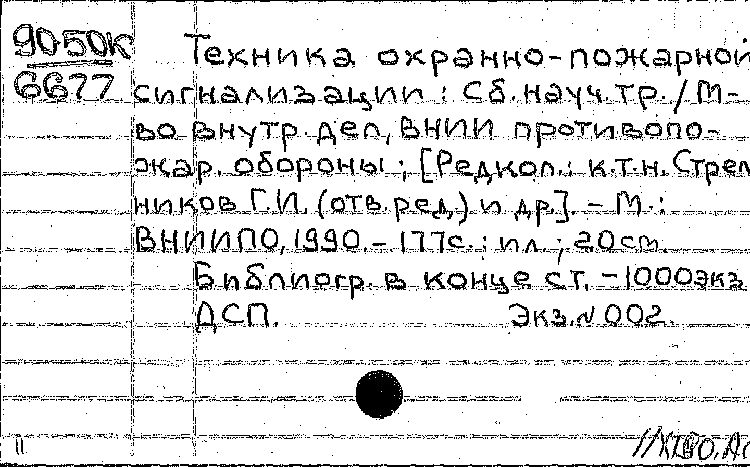 90-50К
6677
Техника охранно-пожарной
сигнализации : Сб. науч. тр. / М-
во внутр. дел, ВНИИ противопо-
жар. обороны ; [Редкол.: к.т.н. Стрел
ников Г.И. (отв. ред.) и др]. - М. :
ВНИИПО, 1990. - 177с. : ил ; 20 см.
Библиогр. в конце ст. - 1000 экз
ДСП. Экз. N 002.